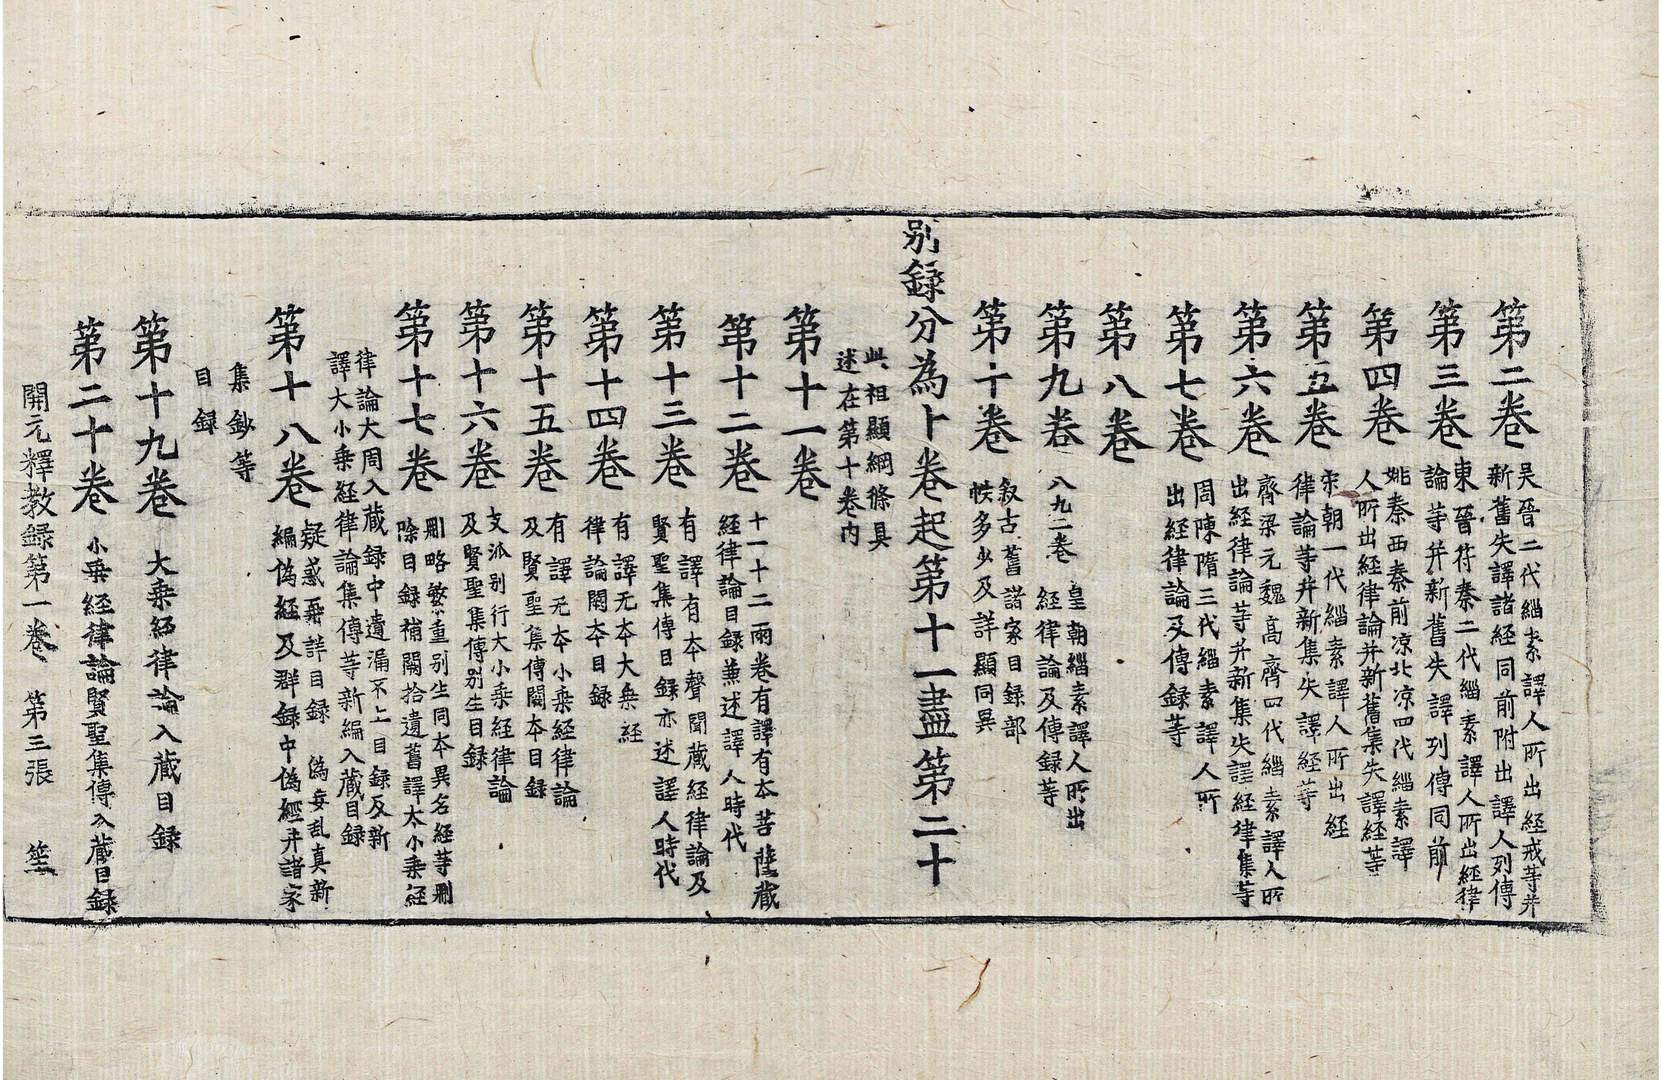 第二卷 吳晉二代緇素譯人所出經戒等并
新舊失譯諸經同前附出譯人列傳
第三卷 東晉苻秦二代緇素譯人所出經律
論等并新舊失譯列傳同前
第四卷 姚秦西秦前凉北凉四代緇素譯
人所出經律論并新舊集失譯經等
第五卷 宋朝一代緇素譯人所出經
律論等并新集失譯經等
第六卷 齊梁元魏高齊四代緇素譯人所
出經律論等并新集失譯經律集等
第七卷 周陳隋三代緇素譯人所
出經律論及傳録等
第八卷
第九卷 八九二卷 皇朝緇素譯人所出
經律論及傳録等
第十卷 叙古舊諸家目録部
帙多少及詳顯同異
别録分為卜卷起第十一盡第二十
此祖顯綱條具
述在第十卷内
第十一卷
第十二卷 十一十二兩卷有譯有本菩薩藏
經律論目録兼述譯人時代
第十三卷 有譯有本聲聞藏經律論及
賢聖集傳目録亦述譯人時代
第十四卷 有譯无本大乗經
律論闕本目録
第十五卷 有譯无本小乗經律論
及賢聖集傳闕本目録
第十六卷 支派别行大小乗經律論
及賢聖集傳别生目録
第十七卷 刪略繁重别生同本異名經等刪
除目録補闕拾遺舊譯大小乗經
律論大周入藏録中遺漏不上目録及新
譯大小乗經律論集傳等新編入藏目録
第十八卷 疑惑再詳目録 僞妄乱真新
編僞經及群録中僞經并諸家
集鈔等
目録
第十九卷 大乗經律論入藏目録
第二十卷 小乗經律論賢聖集傳入藏目録
開元釋教録第一卷 第三張 笙